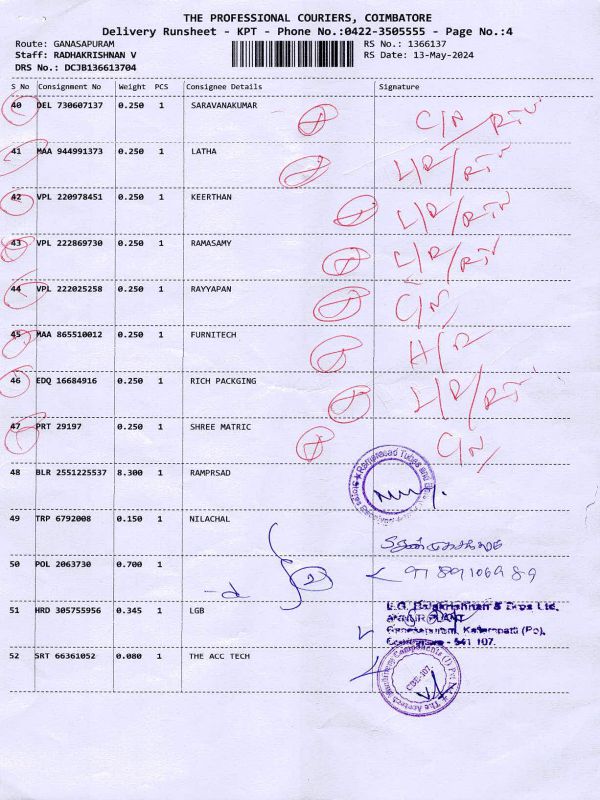 THE PROFESSIONAL COURIERS, COIMBATORE
Delivery Runsheet - KPT - Phone No.:0422-3505555 - Page No.:4
Route: GANASAPURAM RS No.: 1366137
Staff: RADHAKRISHNAN V RS Date: 13-May-2024
DRS No.: DCJB136613704
S No Consignment No Weight PCS Consignee Details Signature
40 DEL 730607137 0.250 1 SARAVANAKUMAR C/N
41 MAA 944991373 0.250 1 LATHA
42 VPL 220978451 0.250 1 KEERTHAN
43 VPL 222869730 0.250 1 RAMASAMY
44 VPL 222025258 0.250 1 RAYYAPAN C/N
45 MAA 865510012 0.250 1 FURNITECH
46 EDQ 16684916 0.250 1 RICH PACKGING
47 PRT 29197 0.250 1 SHREE MATRIC C/N
48 BLR 2551225537 8.300 1 RAMPRSAD
49 TRP 6792008 0.150 1 NILACHAL
50 POL 2063730 0.700 1 2
51 HRD 305755956 0.345 1 LGB
L.G. Balakrishnan & Bros Ltd.
ANNUR PLANT
52 SRT 66361052 0.080 1 THE ACC TECH
CBE-107.